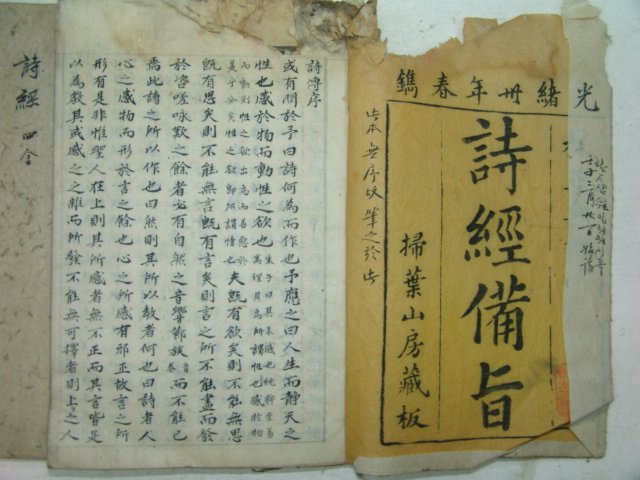 光緒卅年春鐫
詩經備旨
掃葉山房藏板
此本無序故筆之於此
詩傳序
或有問於予曰詩何為而作也予應之曰人生而靜天之
性也感於物而動性之欲也
夫既有欲矣則不能無思
既有思矣則不能無言既有言矣則言之所不能盡而發
於咨嗟咏歎之餘者必有自然之音響節族而不能已
焉此詩之所以作也曰然則其所以教者何也曰詩者人
心之感物而形於言之餘也心之所感有邪正故言之所
形有是非惟聖人在上則其所感者無不正而其言皆足
以為教其或感之之雜而所發不能無可擇者則上之人
詩經 四仝